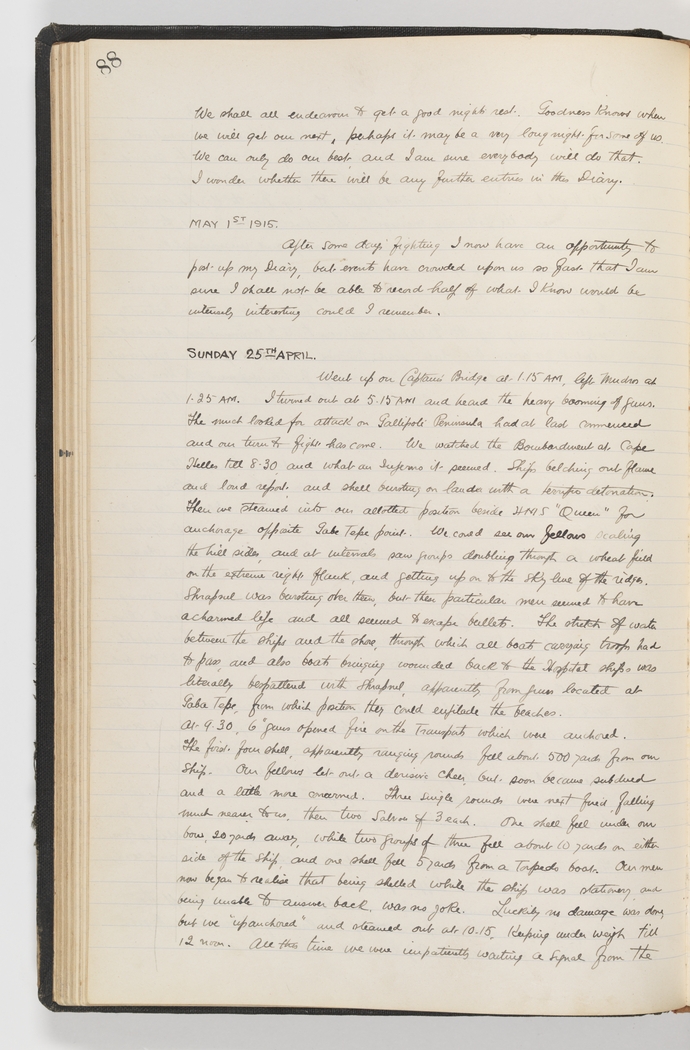 88
We shall all endeavour to get a good nights rest. Goodness knows when
we will get our next, perhaps it may be a very long night for some of us.
We can only do our best, and I am sure everybody will do that.
I wonder whether there will be any further entries in this Diary.
MAY 1ST 1915.
After some days fighting I now have an opportunity to
post up my Diary, but events have crowded upon us so fast that I am
sure I shall not be able to record half of what I know would be
intensely interesting could I remember.
SUNDAY 25TH APRIL.
Went up on Captain's Bridge at 1.15 AM, left Mudros at
1.25 AM. I turned out at 5.15 AM and heard the heavy booming of guns.
The much looked for attack on Gallipoli Peninsula had at last commenced
and our turn to fight has come. We watched the Bombardment at Cape
Helles till 8.30, and what an Inferno it seemed. Ships belching out flame
and loud report, and shell bursting on land with a terrific detonation.
Then we steamed into our allotted position beside HMS "Queen" for
anchorage opposite Gabe Tepe point. We could see our fellows scaling
the hill sides, and at intervals saw groups doubling through a wheat field
on the extreme right flank, and getting up on to the sky line of the ridges.
Shrapnel was bursting over them, but these particular men seemed to have
a charmed life and all seemed to escape bullets. The stretch of water
between the ships and the shore, through which all boats carrying troops had
to pass, and also boats bringing wounded back to the Hospital ships was
literally bespattered with Shrapnel, apparently from guns located at
Gaba Tepe, from which position they could enfilade the beaches.
At 9.30, 6" guns opened fire on the Transports which were anchored.
The first four shell, apparently ranging rounds fell about 500 yards from our
Ship. Our fellows let out a derisive cheer, but soon became subdued
and a little more concerned. Three single rounds were next fired, falling
much nearer to us, then two Salvos of 3 each. One shell fell under our
bow, 20 yards away, while two groups of three fell about 10 yards on either
side of the ship, and one shell fell 5 yards from a Torpedo boat. Our men
now began to realise that being shelled while the ship was stationary, and
being unable to answer back, was no joke. Luckily no damage was done,
but we "up anchored" and steamed out at 10.15, keeping under weigh till
12 noon. All this time we were impatiently waiting a signal from the